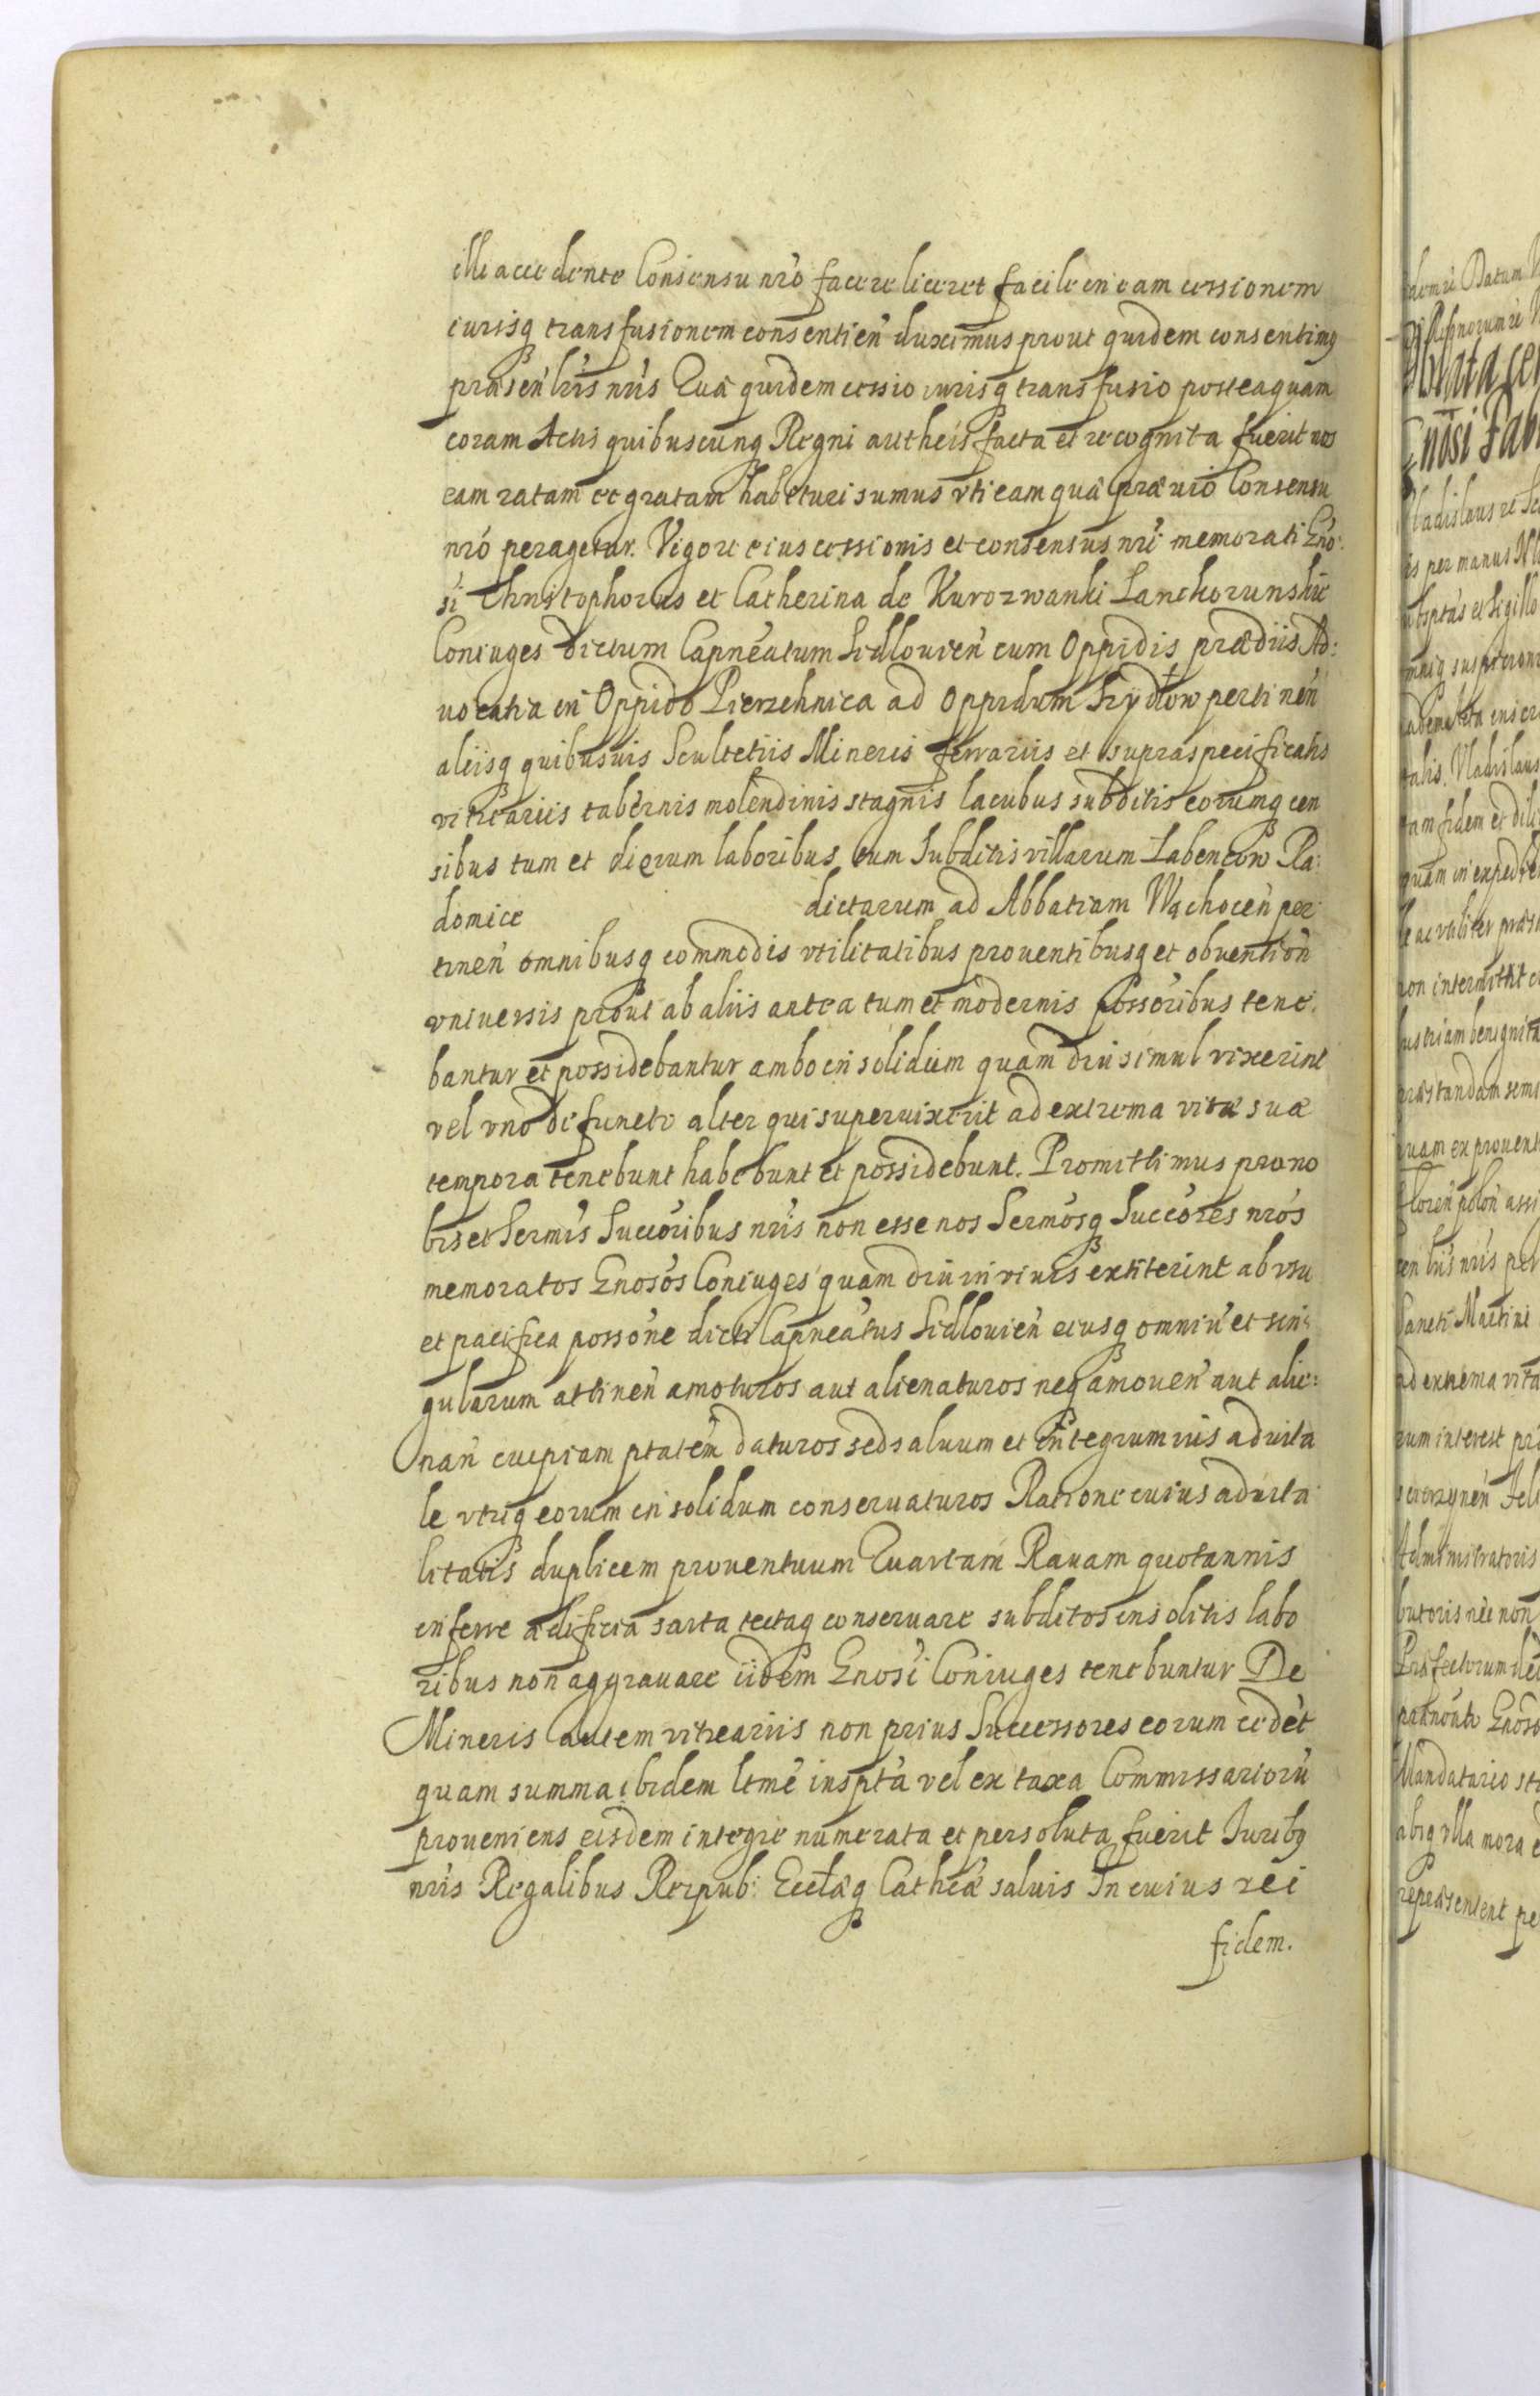 illi accedente Consensu nr̃o facere liceret facile in eam cessionem
iurisq transfusionem consentień duximus prout quidem consentimq
præseń lr̃is nr̃is Quæ quidem cessio iurisq transfusio posteaquam
coram Actis quibuscunq Regni authẽis facta et recognita fuerit nos
eam ratam et gratam habituri sumus vti eam quæ præuio Consensu
nr̃o peragetur. Vigore eius cessionis et consensus nr̃i memorati Gño:
si Christophorus et Catherina de Kurozwanki Lanckorunskie
Coniuges dictum Capneãtum Sidlouień cum Oppidis prædiis Ad:
uocatia in Oppido Pierzchnica ad Oppidum Szydłow pertineń
aliisq quibusuis Scultetiis Mineris ferrariis et supraspecificatis
vitreariis tabernis molendinis stagnis lacubus subditis eorumq cen
sibus tum et dierum laboribus tum Subditis villarum Łabencow Ra:
domice dictarum ad Abbatiam Wąchoceń per
tineń omnibusq commodis vtilitatibus prouentibusq et obuentioń
vniuersis prout ab aliis antea tum et modernis possõribus tene:
bantur et possidebantur ambo in solidum quam diu simul vixerint
vel vno defuncto alter qui superuixerit ad extrema vitæ suæ
tempora tenebunt habebunt et possidebunt. Promittimus pro no
bis et Sermis Succõribus nr̃is non esse nos Sermosq Succõres nr̃os
memoratos Gnosos Coniuges quam diu in viuis extiterint ab vsu
et pacifica possõne dicti Capneãtus Sidlouień eiusq omniũ et sin:
gularum attineń amoturos aut alienaturos neq amoueń aut alie:
nań cuipiam ptatem daturos sed saluum et integrum ius aduita
le vtriq eorum in solidum conseruaturos Ratione cuius aduita
litatis duplicem prouentuum Quartam Rauam quotannis
inferre ædificia sarta tectaq conseruare subditos insolitis labo
ribus non aggrauare iidem Gnosi Coniuges tenebuntur De
Mineris autem vitreariis non prius Successores eorum cedet
quam summa ibidem ltme inspta vel ex taxa Commissarioru
proueniens eisdem integre numerata et persoluta fuerit Juribq
nr̃is Regalibus Reipub: Ecclæq Cathcæ saluis In cuius rei
fidem.